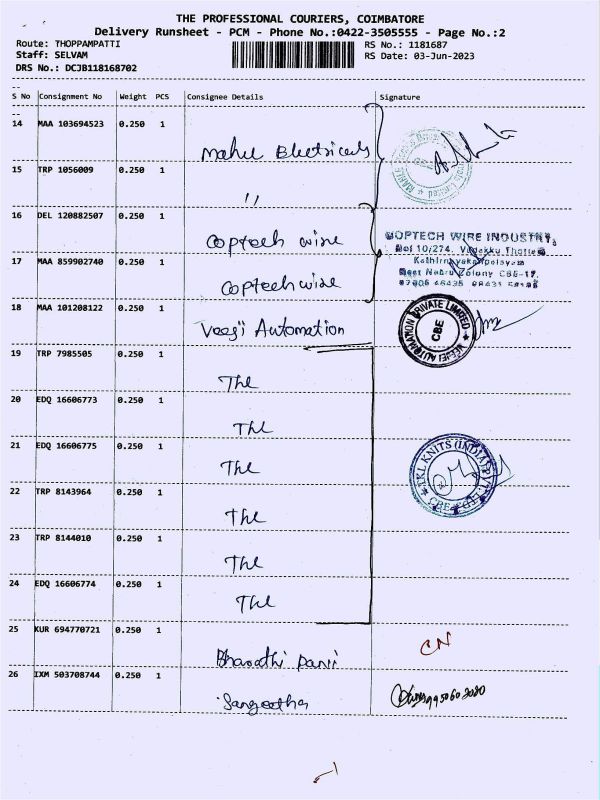 THE PROFESSIONAL COURIERS, COIMBATORE
Delivery Runsheet - PCM - Phone No.:0422-3505555 - Page No.:2
Route: THOPPAMPATTI RS No.: 1181687
Staff: SELVAM RS Date: 03-Jun-2023
DRS No.: DCJB118168702
S No Consignment No Weight PCS Consignee Details Signature
14 MAA 103694523 0.250 1
15 TRP 1056009 0.250 1 "
16 DEL 120882507 0.250 1 Coptech wire
COPTECH WIRE INDUSTRY,
17 MAA 859902740 0.250 1 Coptech wire
18 MAA 101208122 0.250 1 Veegi Automation
CBE
19 TRP 7985505 0.250 1 The
20 EDQ 16606773 0.250 1 The
21 EDQ 16606775 0.250 1 The
KNITS (INDIA) PVT.
22 TRP 8143964 0.250 1 The
23 TRP 8144010 0.250 1 The
24 EDQ 16606774 0.250 1 The
25 KUR 694770721 0.250 1 Bharathi CN
26 IXM 503708744 0.250 1 Sangeetha